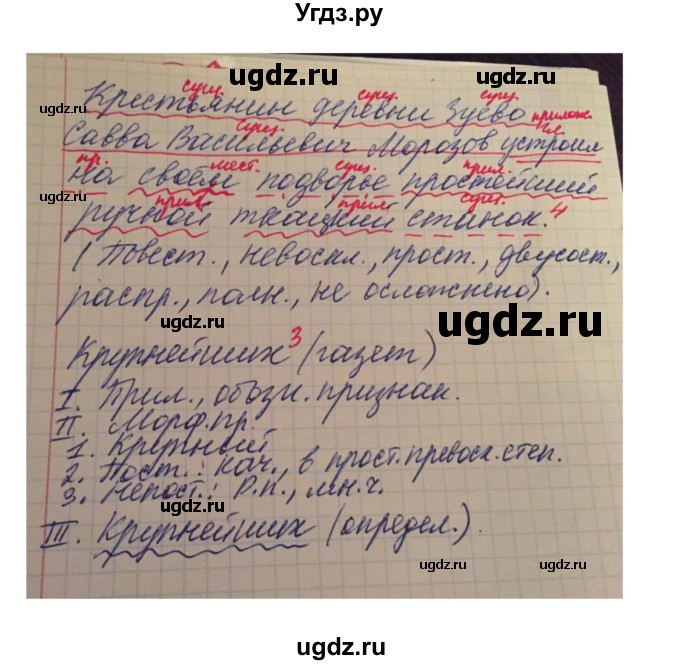 Угдз.ру
сущ. сущ. сущ.
Крестьянин деревни Зуево
прилож.
сущ. гл.
Савва Васильевич Морозов устроил
пр. мест. сущ. прил.
на своём подворье простейший
прил. прил. сущ.
ручной ткацкий станок.4
(Повест., невоскл., прост., двусост.,
распр., полн., не осложнено).
Крупнейших3 (газет)
I. Прил., обозн. признак.
II. Морф. пр.
1. Крупный
2. Пост.: кач., в прост. превосх. степ.
3. Непост.: Р.п., мн.ч.
III. Крупнейших (определ.).
ugdz.ru
ugdz.ru
ugdz.ru
ugdz.ru
ugdz.ru
ugdz.ru
ugdz.ru
ugdz.ru
ugdz.ru
ugdz.ru
ugdz.ru
ugdz.ru
ugdz.ru